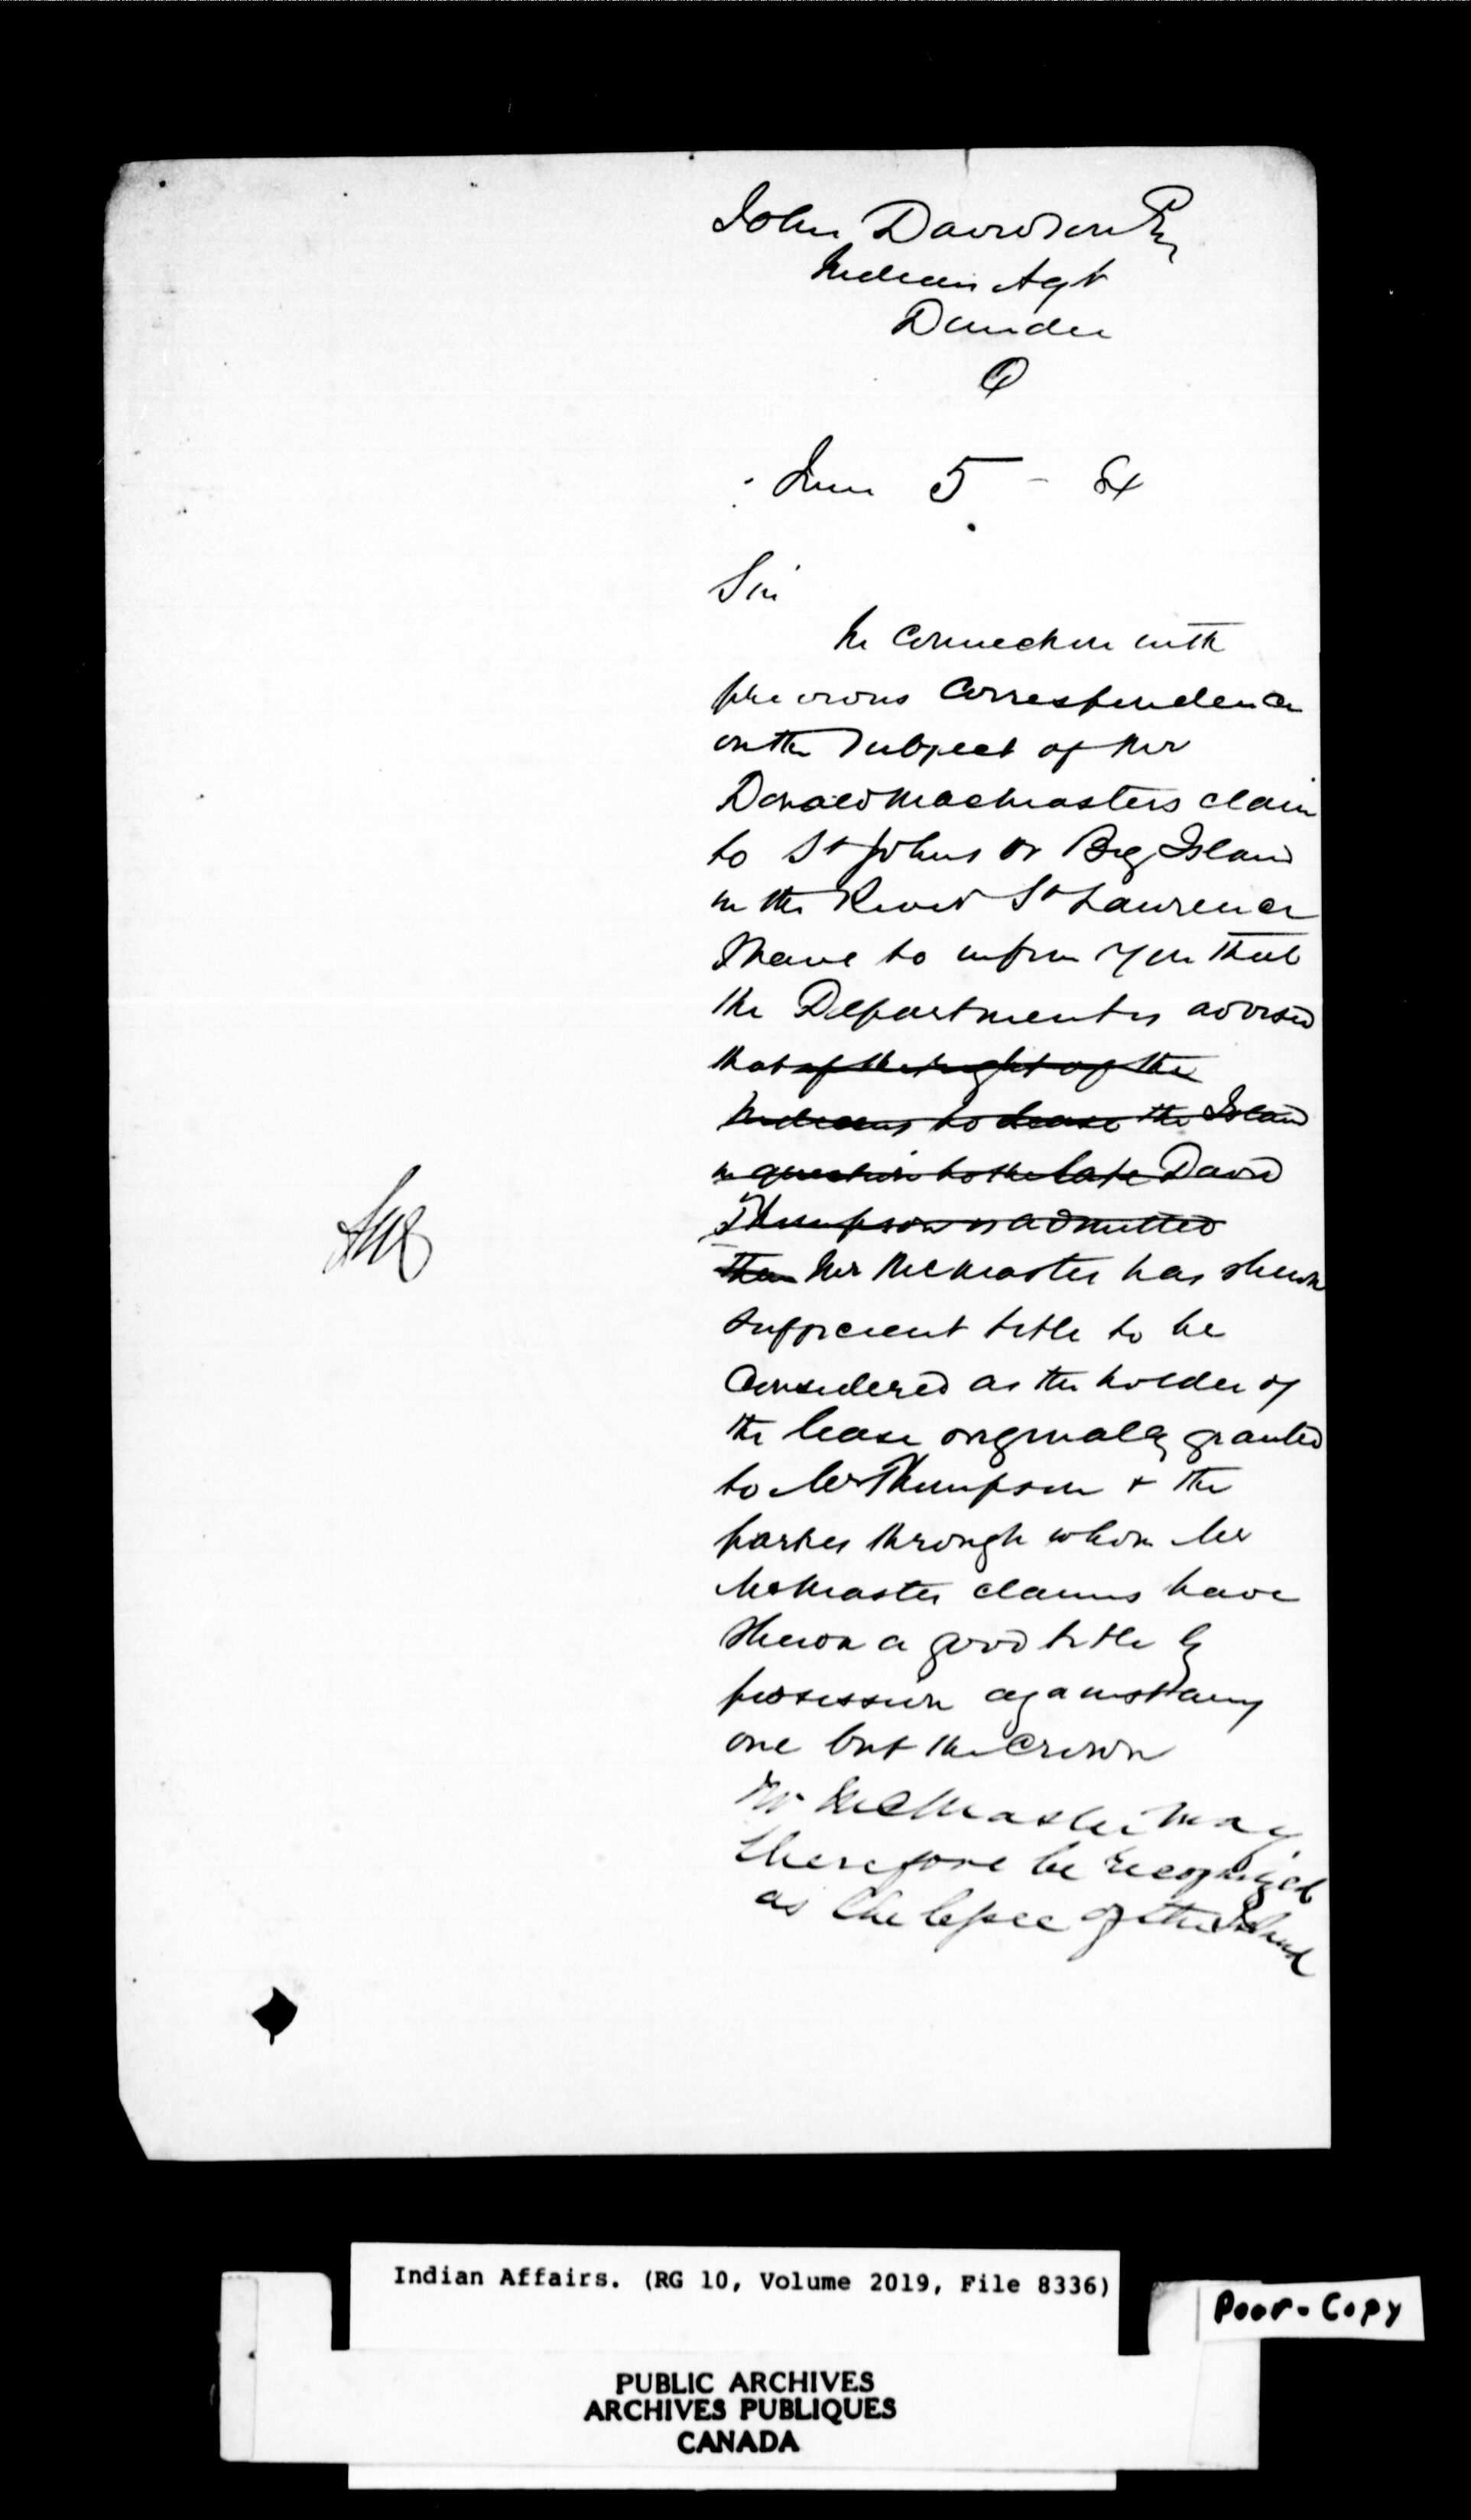 John Davidson Esq
Indian Agt
Dundee
Q
June 5 - 84
Sir
In connection with
previous correspondence
on the subject of Mr
Donald MacMasters claim
to St Johns or Big Island
in the River St Lawrence
I have to inform you that
the Department is advised
that if the right of the
Indians to lease the Island
in question to the late David
Thompson is admitted
then Mr McMaster has shewn
sufficient title to be
considered as the holder of
the lease originally granted
to Mr Thompson & the
parties through whom Mr
McMaster claims have
shewn a good title by
possession against any
one but the Crown
Mr McMaster may
therefore be recognized
as the lessee of the Island
Indian Affairs. (RG 10, Volume 2019, File 8336)
Poor-Copy
PUBLIC ARCHIVES
ARCHIVES PUBLIQUES
CANADA